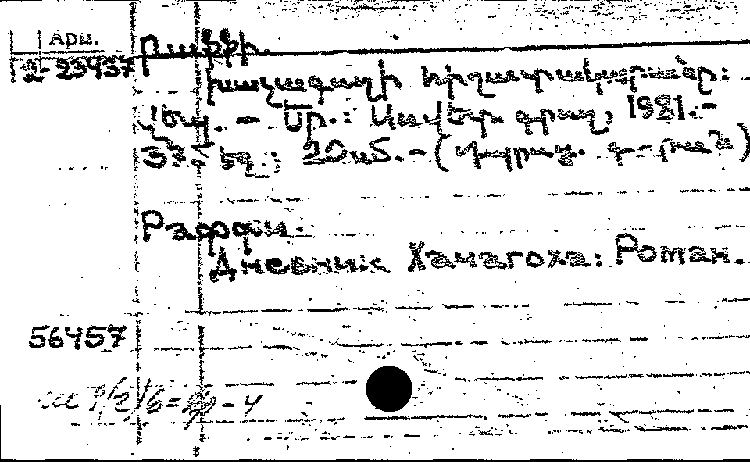 Арм.
2-23457 Րաֆֆի.
Խաչագողի հիշատակարանը:
Վեպ. – Եր.: Սովետ. գրող, 1981.–
333 եջ.; 20սմ. – (Դպրոց. գ-րան)
Раффи.
Дневник Хачагоха: Роман.
56457